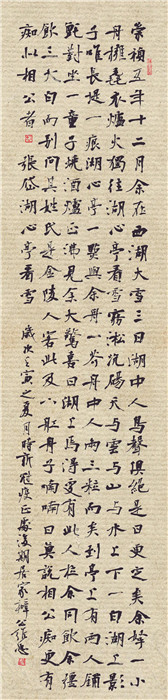 崇禎五年十二月余在西湖大雪三日湖中人鳥聲俱絕是日更定矣余拏一小
舟擁毳衣爐火獨往湖心亭看雪霧淞沆碭天與雲與山與水上下一白湖上影
子唯長堤一痕湖心亭一點與余舟一芥舟中人兩三粒而已到亭上有兩人鋪
氈對坐一童子燒酒爐正沸見余大驚喜曰湖上焉得更有此人拉余同飲余強
飲三大白而別問其姓氏是金陵人客此及下船舟子喃喃曰莫說相公痴更有
痴似相公者 張岱湖心亭看雪 歲次